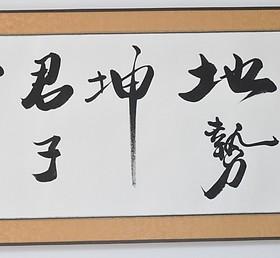 地勢
坤
君子